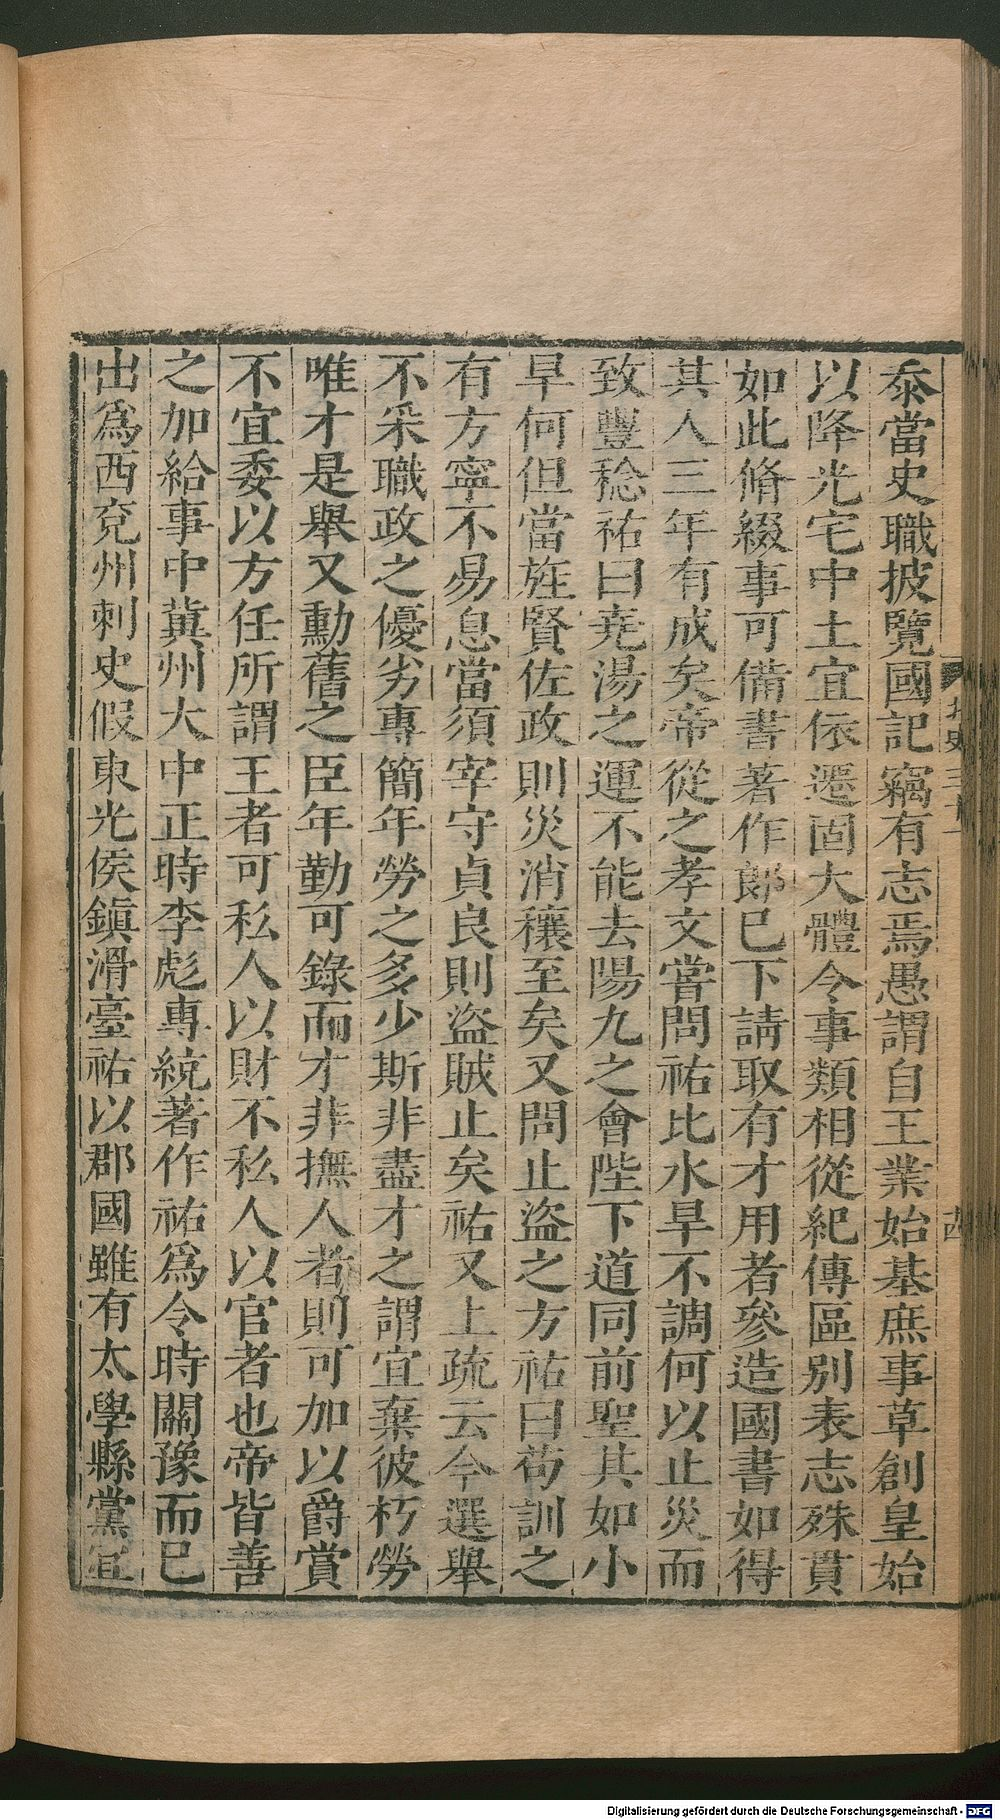 忝當史職披覽國記竊有志焉愚謂自王業始基庶事草創皇始
以降光宅中土宜依遷固大體令事類相從紀傳區別表志殊貫
如此脩綴事可備書著作郎已下請取有才用者參造國書如得
其人三年有成矣帝從之孝文嘗問祐比水旱不調何以止災而
致豐稔祐曰堯湯之運不能去陽九之會陛下道同前聖其如小
旱何但當旌賢佐政則災消穰至矣又問止盜之方祐曰苟訓之
有方寧不易息當須宰守貞良則盜賊止矣祐又上疏云今選舉
不采職政之優劣專簡年勞之多少斯非盡才之謂宜棄彼朽勞
唯才是舉又勳舊之臣年勤可錄而才非撫人者則可加以爵賞
不宜委以方任所謂王者可私人以財不私人以官者也帝皆善
之加給事中冀州大中正時李彪專統著作祐爲令時關豫而已
出爲西兗州刺史假東光侯鎮滑臺祐以郡國雖有太學縣黨宜
Digitalisierung gefördert durch die Deutsche Forschungsgemeinschaft - DFG